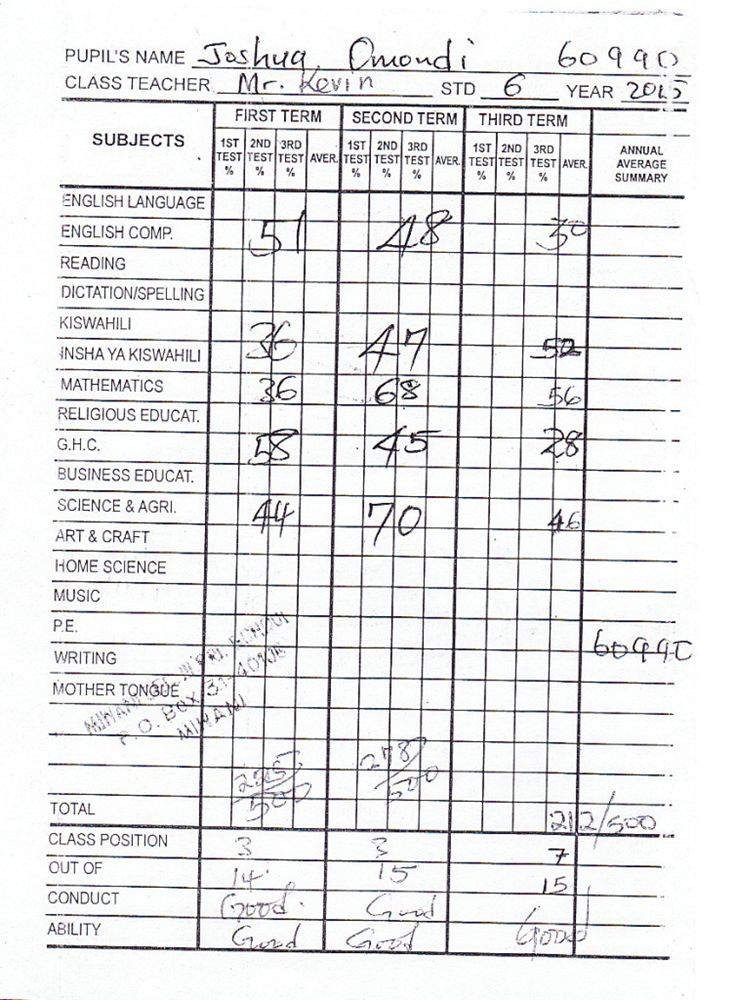 PUPIL'S NAME Joshua Omondi 60990
CLASS TEACHER Mr. Kevin STD 6 YEAR 2015
SUBJECTS FIRST TERM SECOND TERM THIRD TERM ANNUAL AVERAGE SUMMARY
1ST TEST % 2ND TEST % 3RD TEST % AVER. 1ST TEST % 2ND TEST % 3RD TEST % AVER. 1ST TEST % 2ND TEST % 3RD TEST % AVER.
ENGLISH LANGUAGE
ENGLISH COMP. 51 48 30
READING
DICTATION/SPELLING
KISWAHILI
INSHA YA KISWAHILI 36 47 52
MATHEMATICS 36 68 56
RELIGIOUS EDUCAT.
G.H.C. 58 45 28
BUSINESS EDUCAT.
SCIENCE & AGRI. 44 70 46
ART & CRAFT
HOME SCIENCE
MUSIC
P.E.
WRITING 60990
MOTHER TONGUE
P.O. Box 31-40108
MIWANI
225/500 278/500
TOTAL 212/500
CLASS POSITION 3 3 7
OUT OF 14 15 15
CONDUCT Good. Good
ABILITY Good Good Good